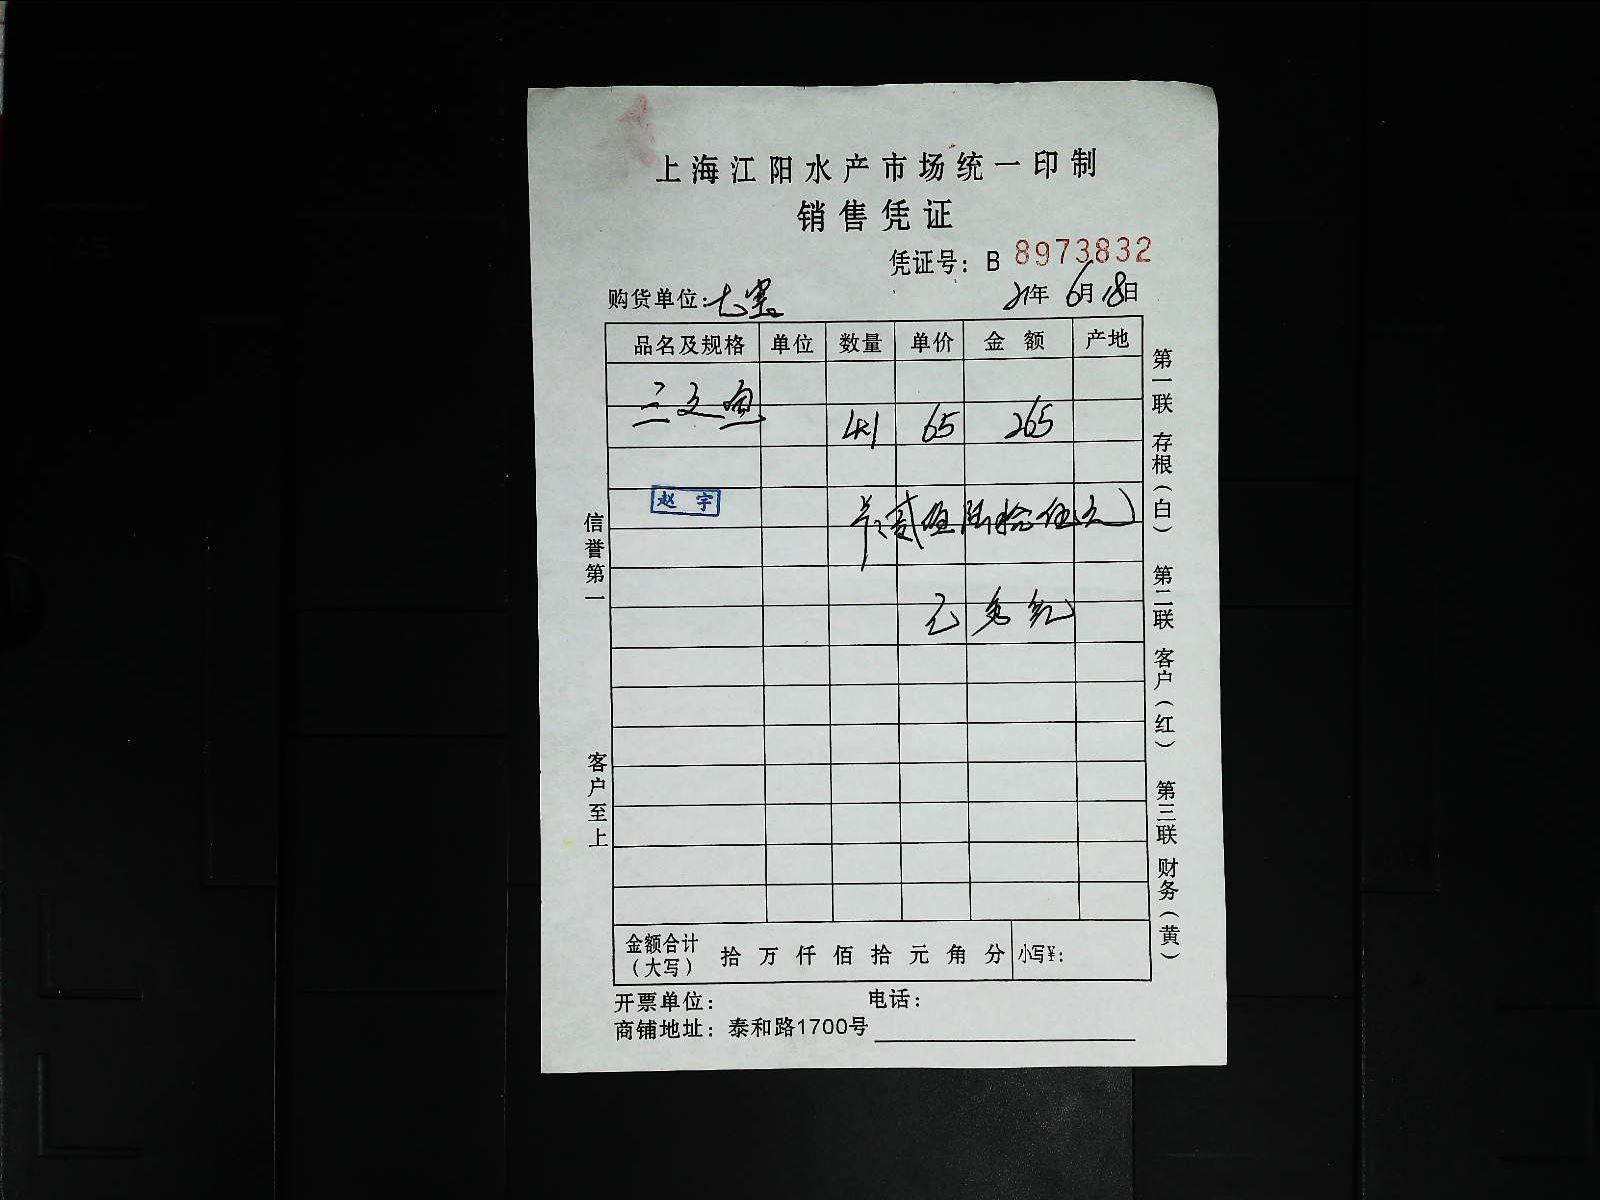 上海江阳水产市场统一印制
销售凭证
凭证号：B 8973832
购货单位：七宝 21年 6月 18日
品名及规格 单位 数量 单价 金额 产地
三文鱼 4.1 65 265
赵宇
贰佰陆拾伍元
信誉第一
客户至上
第一联 存根（白） 第二联 客户（红） 第三联 财务（黄）
金额合计（大写） 拾 万 仟 佰 拾 元 角 分 小写¥：
开票单位： 电话：
商铺地址：泰和路1700号